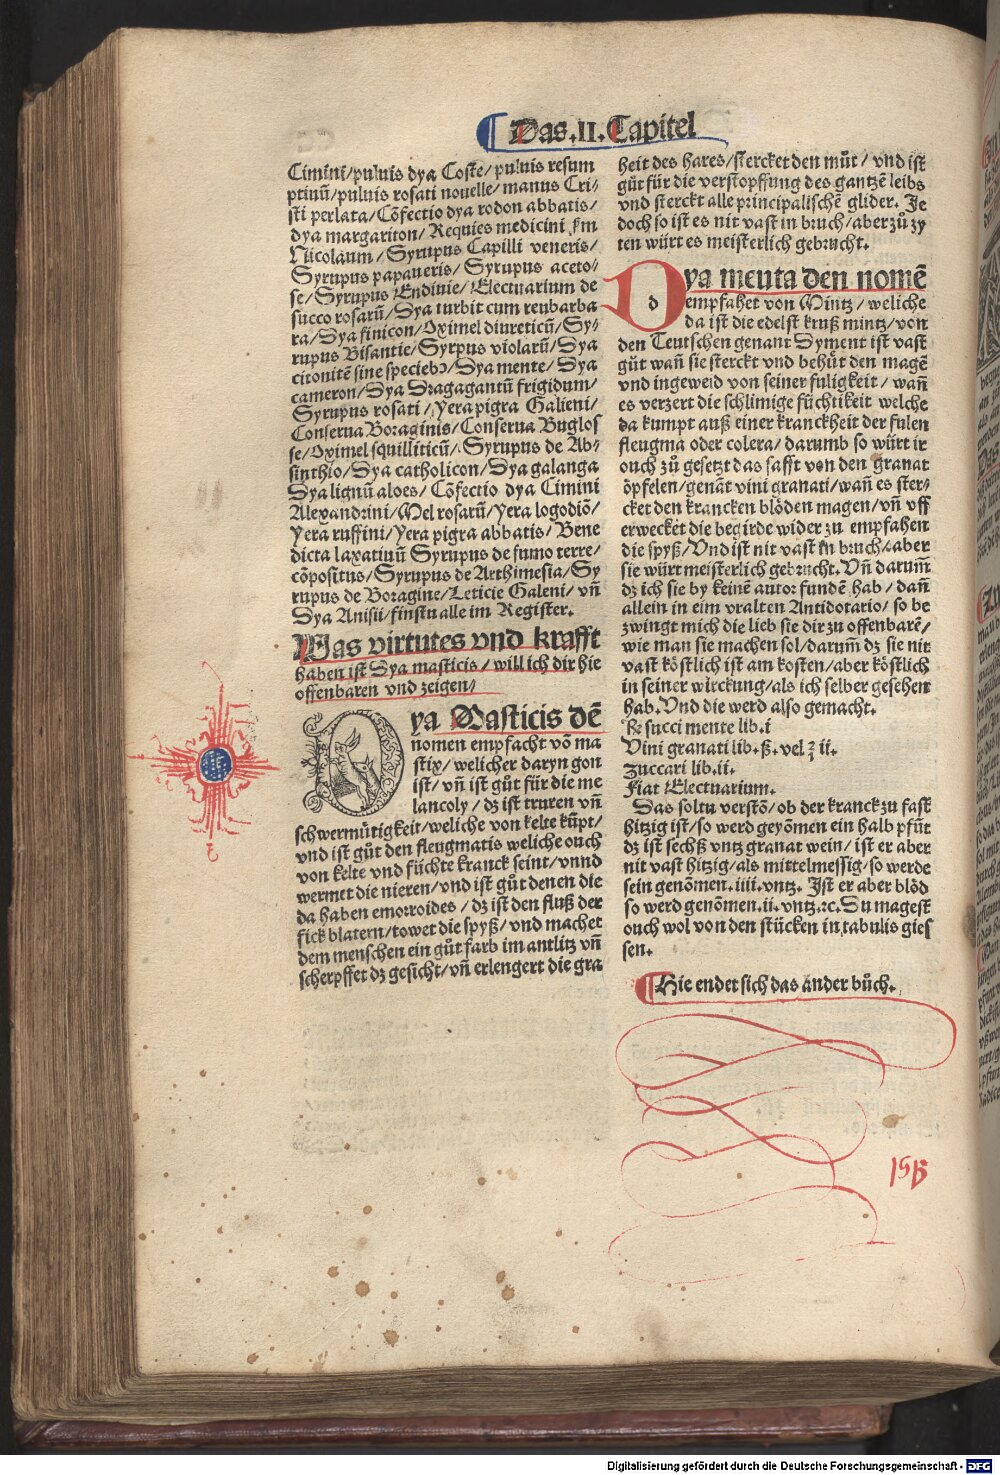 Das .II. Capitel
Cimini/puluis dya Coste/puluis resum
ptinū/puluis rosati nouelle/manus Cri⸗
sti perlata/Cōfectio dya rodon abbatis/
dya margariton/Requies medicini ẜm
Nicolaum/Syrupus Capilli veneris/
Syrupus papaueris/Syrupus aceto⸗
se/Syrupus Endiuie/Electuarium de
succo rosarū/Dya turbit cum reubarba
ra/Dya finicon/Oximel diureticū/Sy⸗
rupus Bisantie/Syrpus violarū/Dya
citonitē sine specieb₉/Dya mente/Dya
cameron/Dya Dragagantū frigidum/
Syrupus rosati/Yera pigra Galieni/
Conserua Boraginis/Conserua Buglos
se/Oximel squilliticū/Syrupus de Ab⸗
sinthio/Dya catholicon/Dya galanga
Dya lignū aloes/Cōfectio dya Cimini
Alexandrini/Mel rosarū/Yera logodiō/
Yera ruffini/Yera pigra abbatis/Bene
dicta laxatiuū Syrupus de fumo terre/
cōpositus/Syrupus de Arthimesia/Sy
rupus de Boragine/Leticie Galeni/vn̄
Dya Anisii/finstu alle im Register.
Was virtutes vnd krafft
haben ist Dya masticis/will ich dir hie
offenbaren vnd zeigen/
Dya Masticis dē
nomen empfacht vō ma
stix/welicher daryn gon
ist/vn̄ ist gůt für die me
lancoly/dz ist truren vn̄
schwermütigkeit/weliche von kelte kūpt/
vnd ist gůt den fleugmatis weliche ouch
von kelte vnd füchte kranck seint/vnnd
wermet die nieren/vnd ist gůt denen die
da haben emorroides/dz ist den fluß der
fick blatern/towet die spyß/vnd machet
dem menschen ein gůt farb im antlitz vn̄
scherpffet dz gesicht/vn̄ erlengert die gra
heit des hares/stercket den můt/vnd ist
gůt für die verstopffung des gantzē leibs
vnd sterckt alle principalischē glider. Je
doch so ist es nit vast in bruch/aber zů zy
ten würt es meisterlich gebrucht.
Dya menta den nomē
empfahet von Mintz/weliche
da ist die edelst kruß mintz/von
den Teutschen genant Dyment ist vast
gůt wan̄ sie sterckt vnd behůt den magē
vnd ingeweid von seiner fuligkeit/wan̄
es verzert die schlimige füchtikeit welche
da kumpt auß einer kranckheit der fulen
fleugma oder colera/darumb so würt ir
ouch zů gesetzt das safft von den granat
öpfelen/genāt vini granati/wan̄ es ster⸗
cket den krancken blöden magen/vn̄ vff
erwecket die begirde wider zu empfahen
die spyß/Vnd ist nit vast in bruch/aber
sie würt meisterlich gebrucht. Vn̄ darum̄
dz ich sie by keinē autor fundē hab/dan̄
allein in eim vralten Antidotario/so be
zwingt mich die lieb sie dir zu offenbarē/
wie man sie machen sol/darum̄ dz sie nit
vast köstlich ist am kosten/aber köstlich
in seiner wirckung/als ich selber gesehen
hab. Vnd die werd also gemacht.
℞ succi mente lib. i
Vini granati lib. ß. vel ℥ ii.
Zuccari lib. ii.
Fiat Electuarium.
Das soltu verstō/ob der kranck zu fast
hitzig ist/so werd genōmen ein halb pfūt
dz ist sechß vntz granat wein/ist er aber
nit vast hitzig/als mittelmessig/so werde
sein genōmen. iiii. vntz. Ist er aber blöd
so werd genōmen. ii. vntz. ꝛc. Du magest
ouch wol von den stücken in tabulis gies
sen.
Hie endet sich das ander bůch.
Digitalisierung gefördert durch die Deutsche Forschungsgemeinschaft - DFG